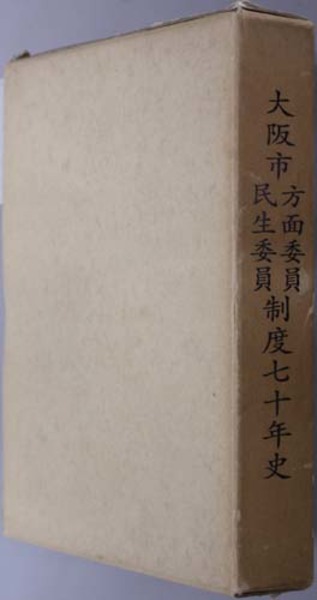 大阪市
方面委員
民生委員
制度七十年史